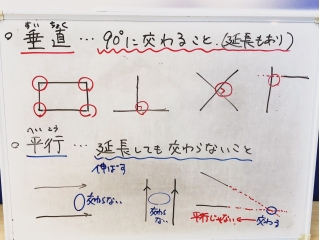 すい ちょく
○ 垂直 … 90°に交わること。(延長もあり)
へい こう
○ 平行 … 延長しても交わらないこと
伸ばす
交わらない
交わらない
平行じゃない ← 交わる